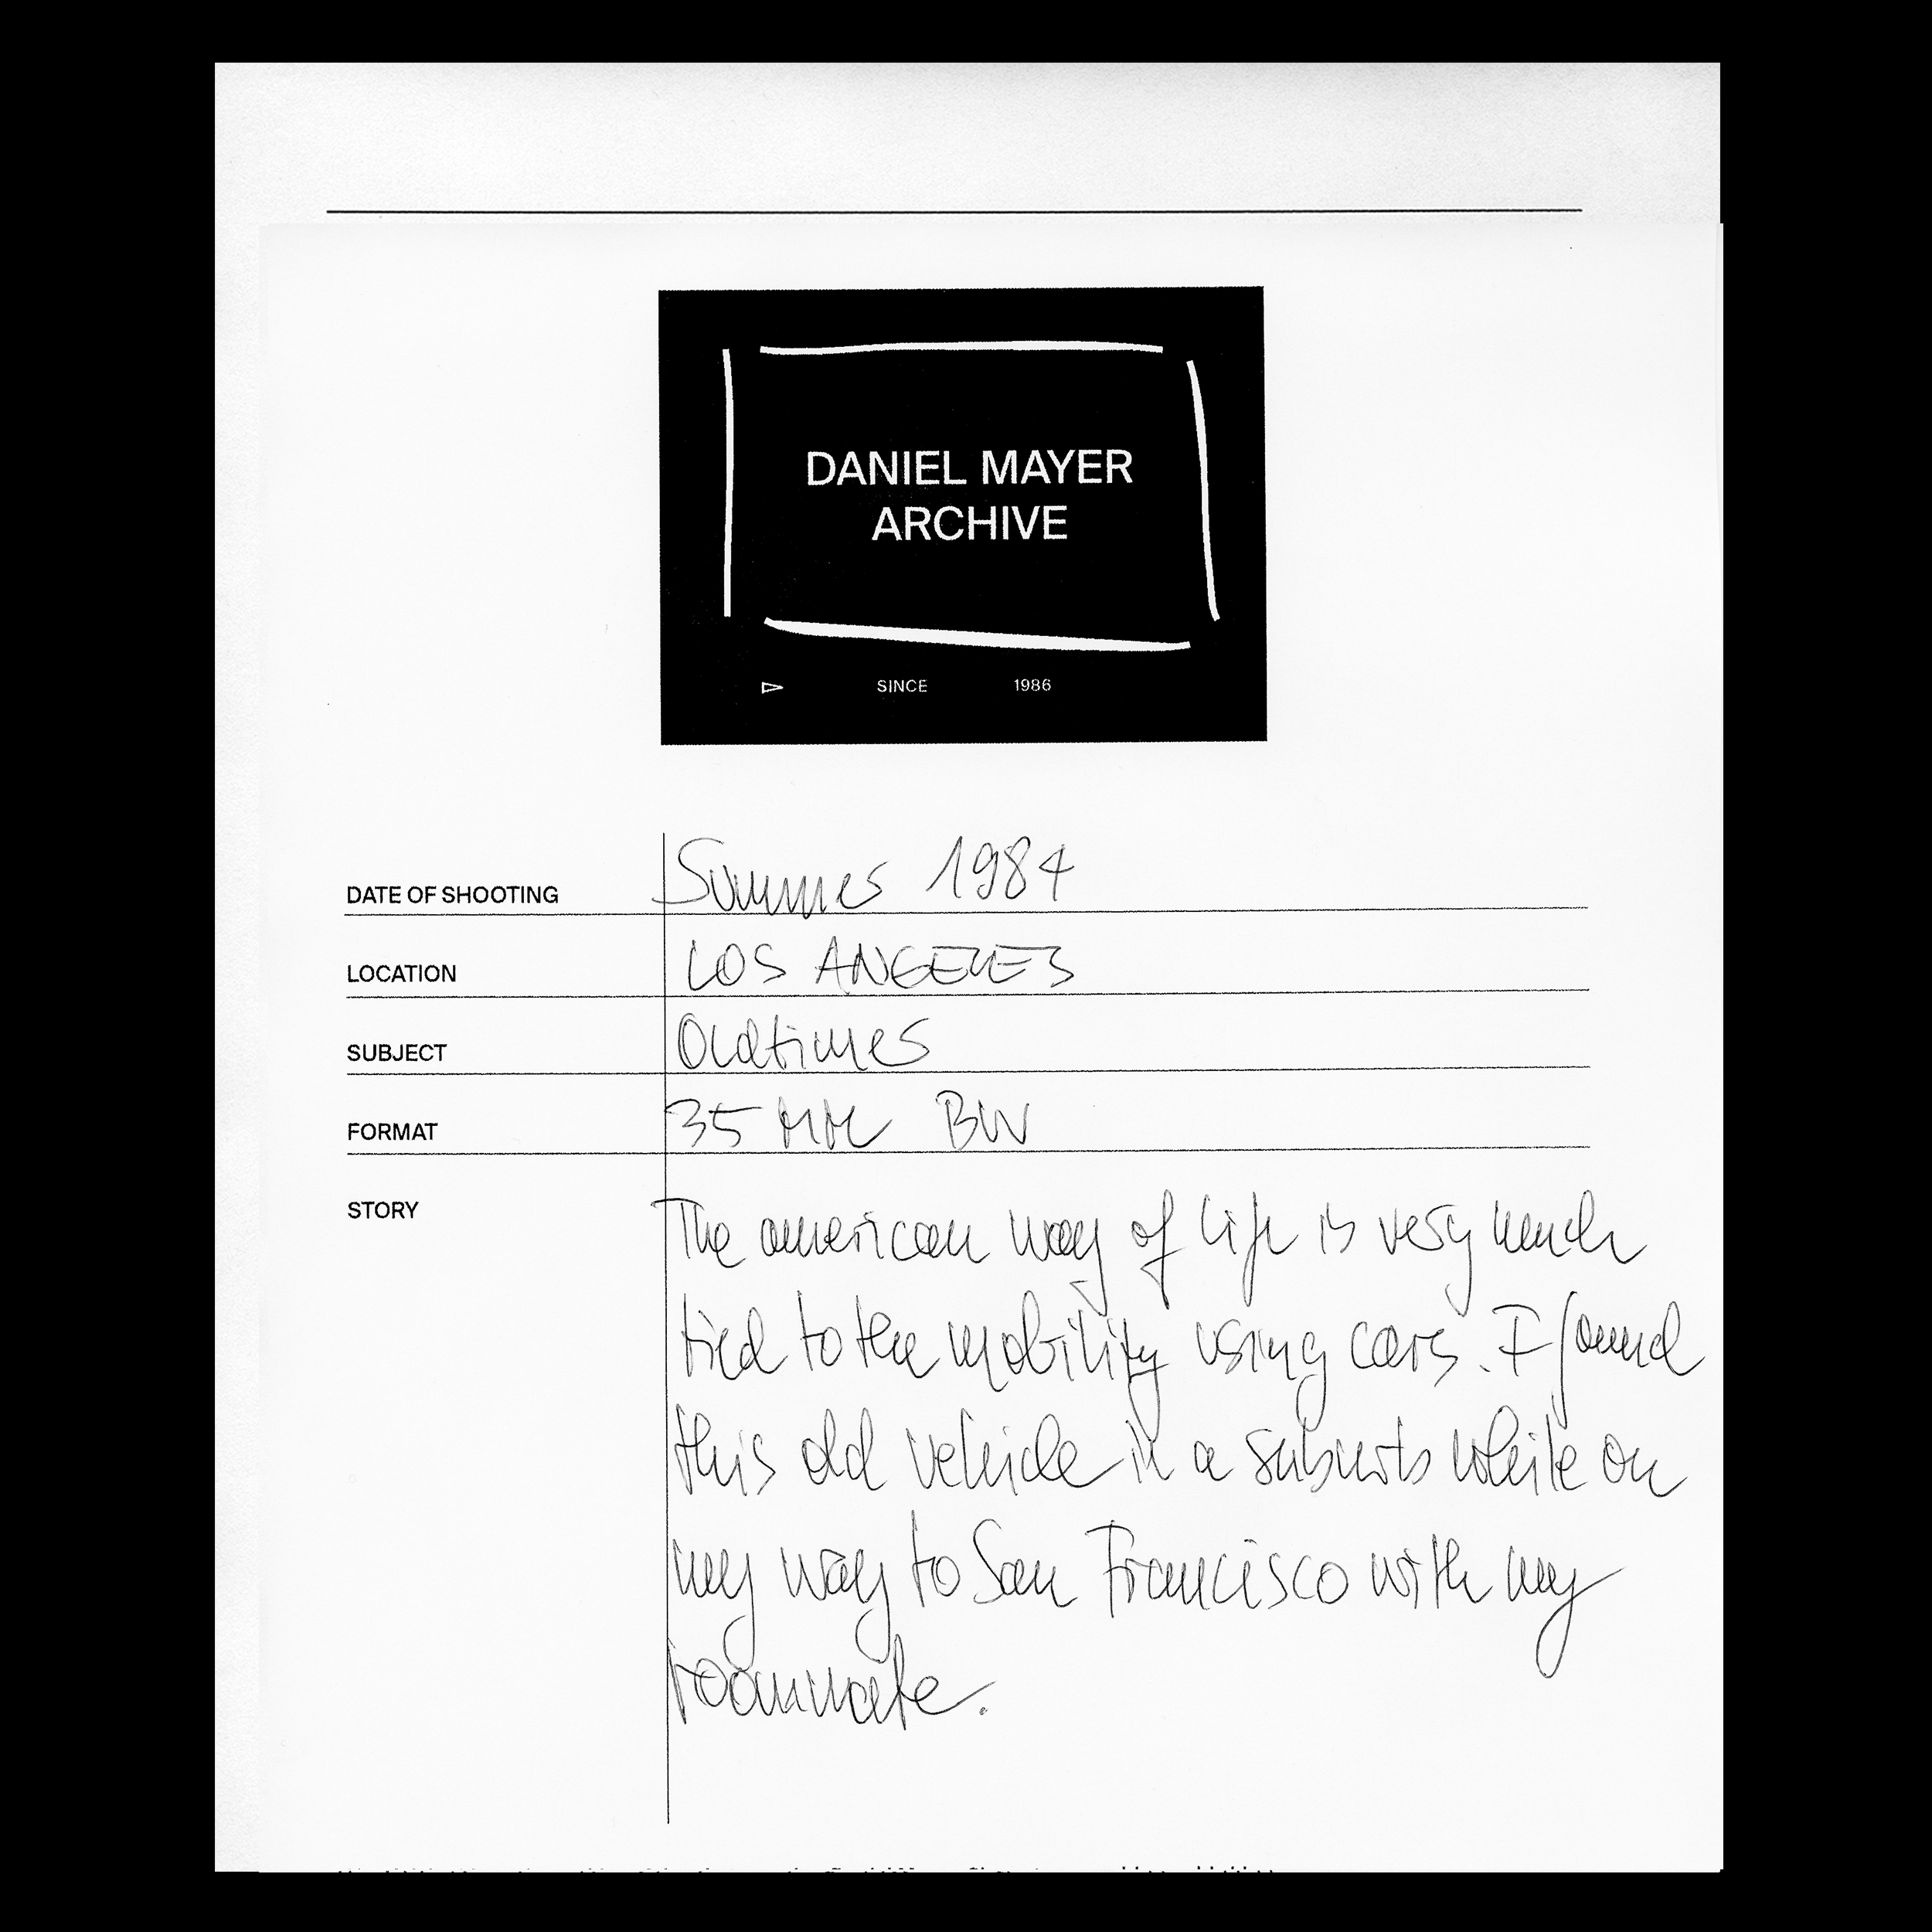 DANIEL MAYER
ARCHIVE
SINCE 1986
DATE OF SHOOTING Summer 1984
LOCATION LOS ANGELES
SUBJECT Oldtimer
FORMAT 35 MM BW
STORY The american way of life is very much
tied to the mobility using cars. I found
this old vehicle in a suburb while on
my way to San Francisco with my
roommate.